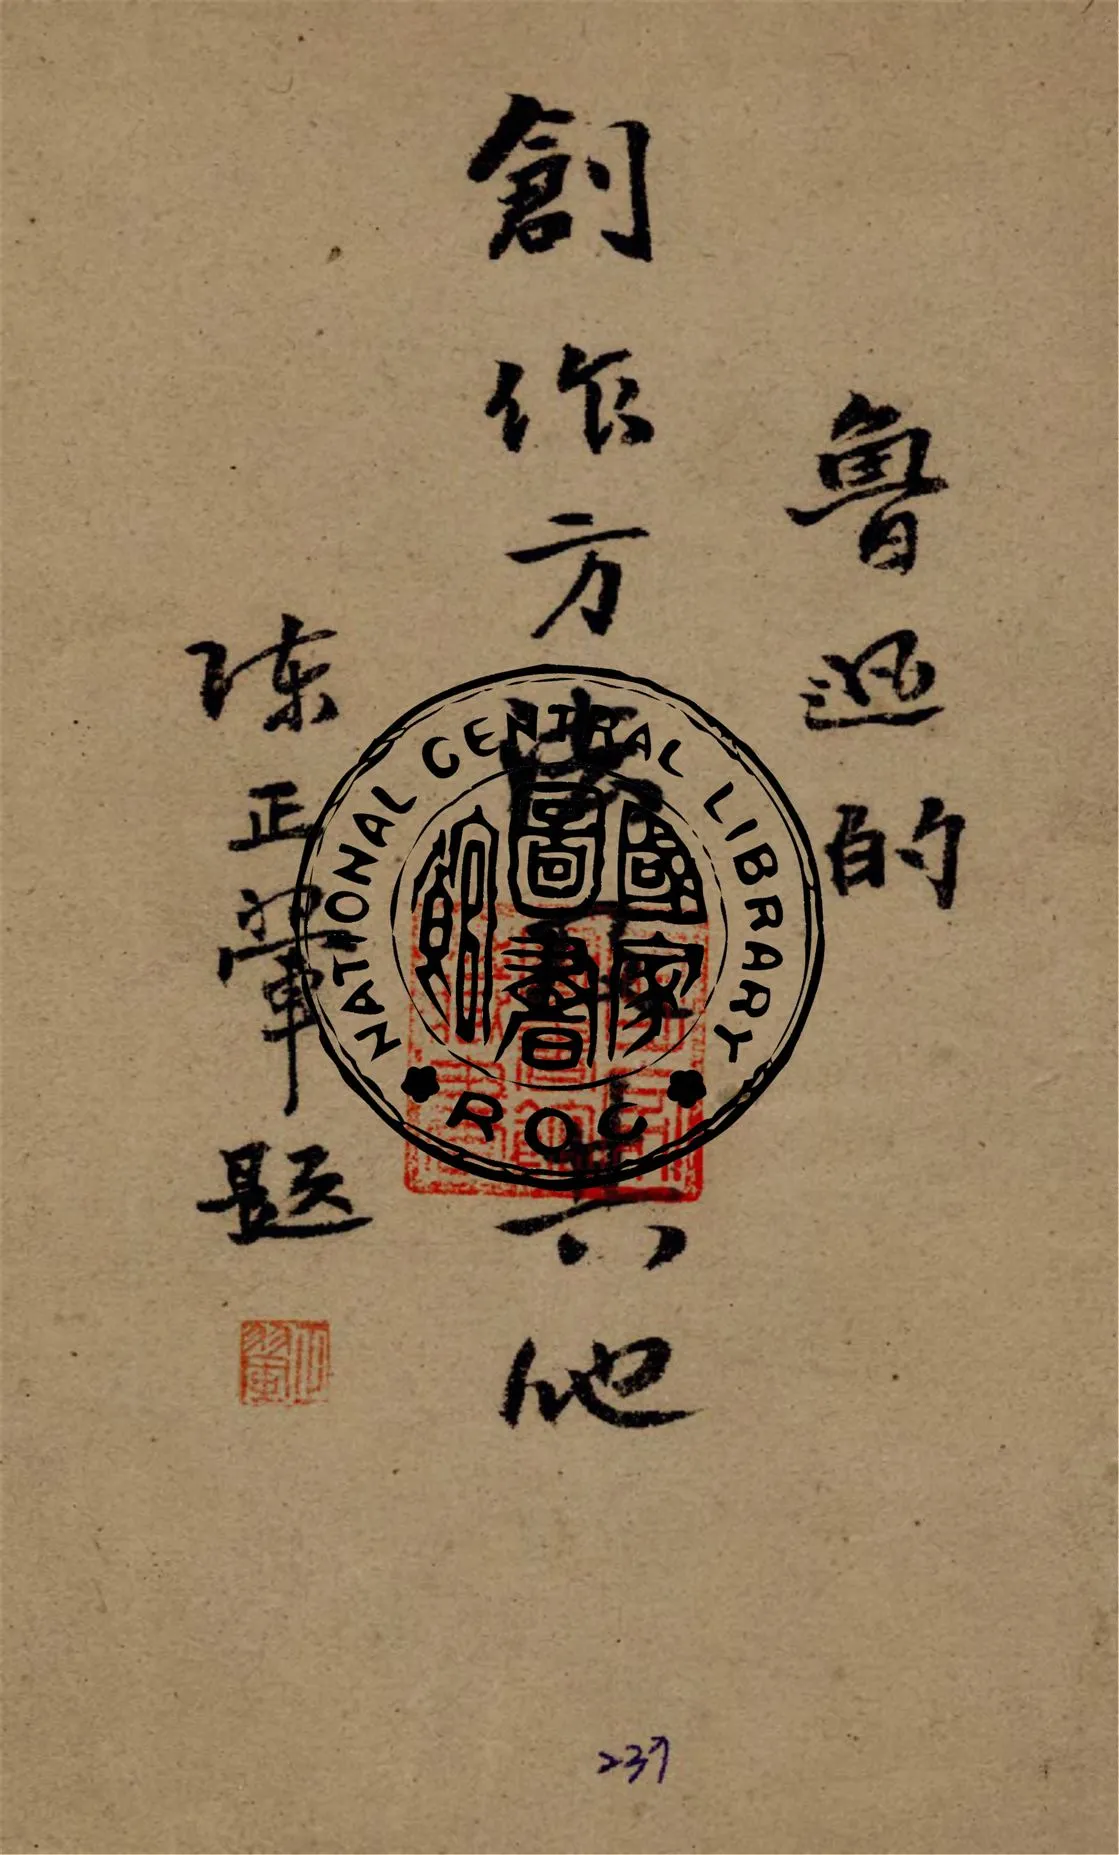 魯迅的
創作方法其他
陳正題
NATIONAL CENTRAL LIBRARY
國家圖書館
ROC